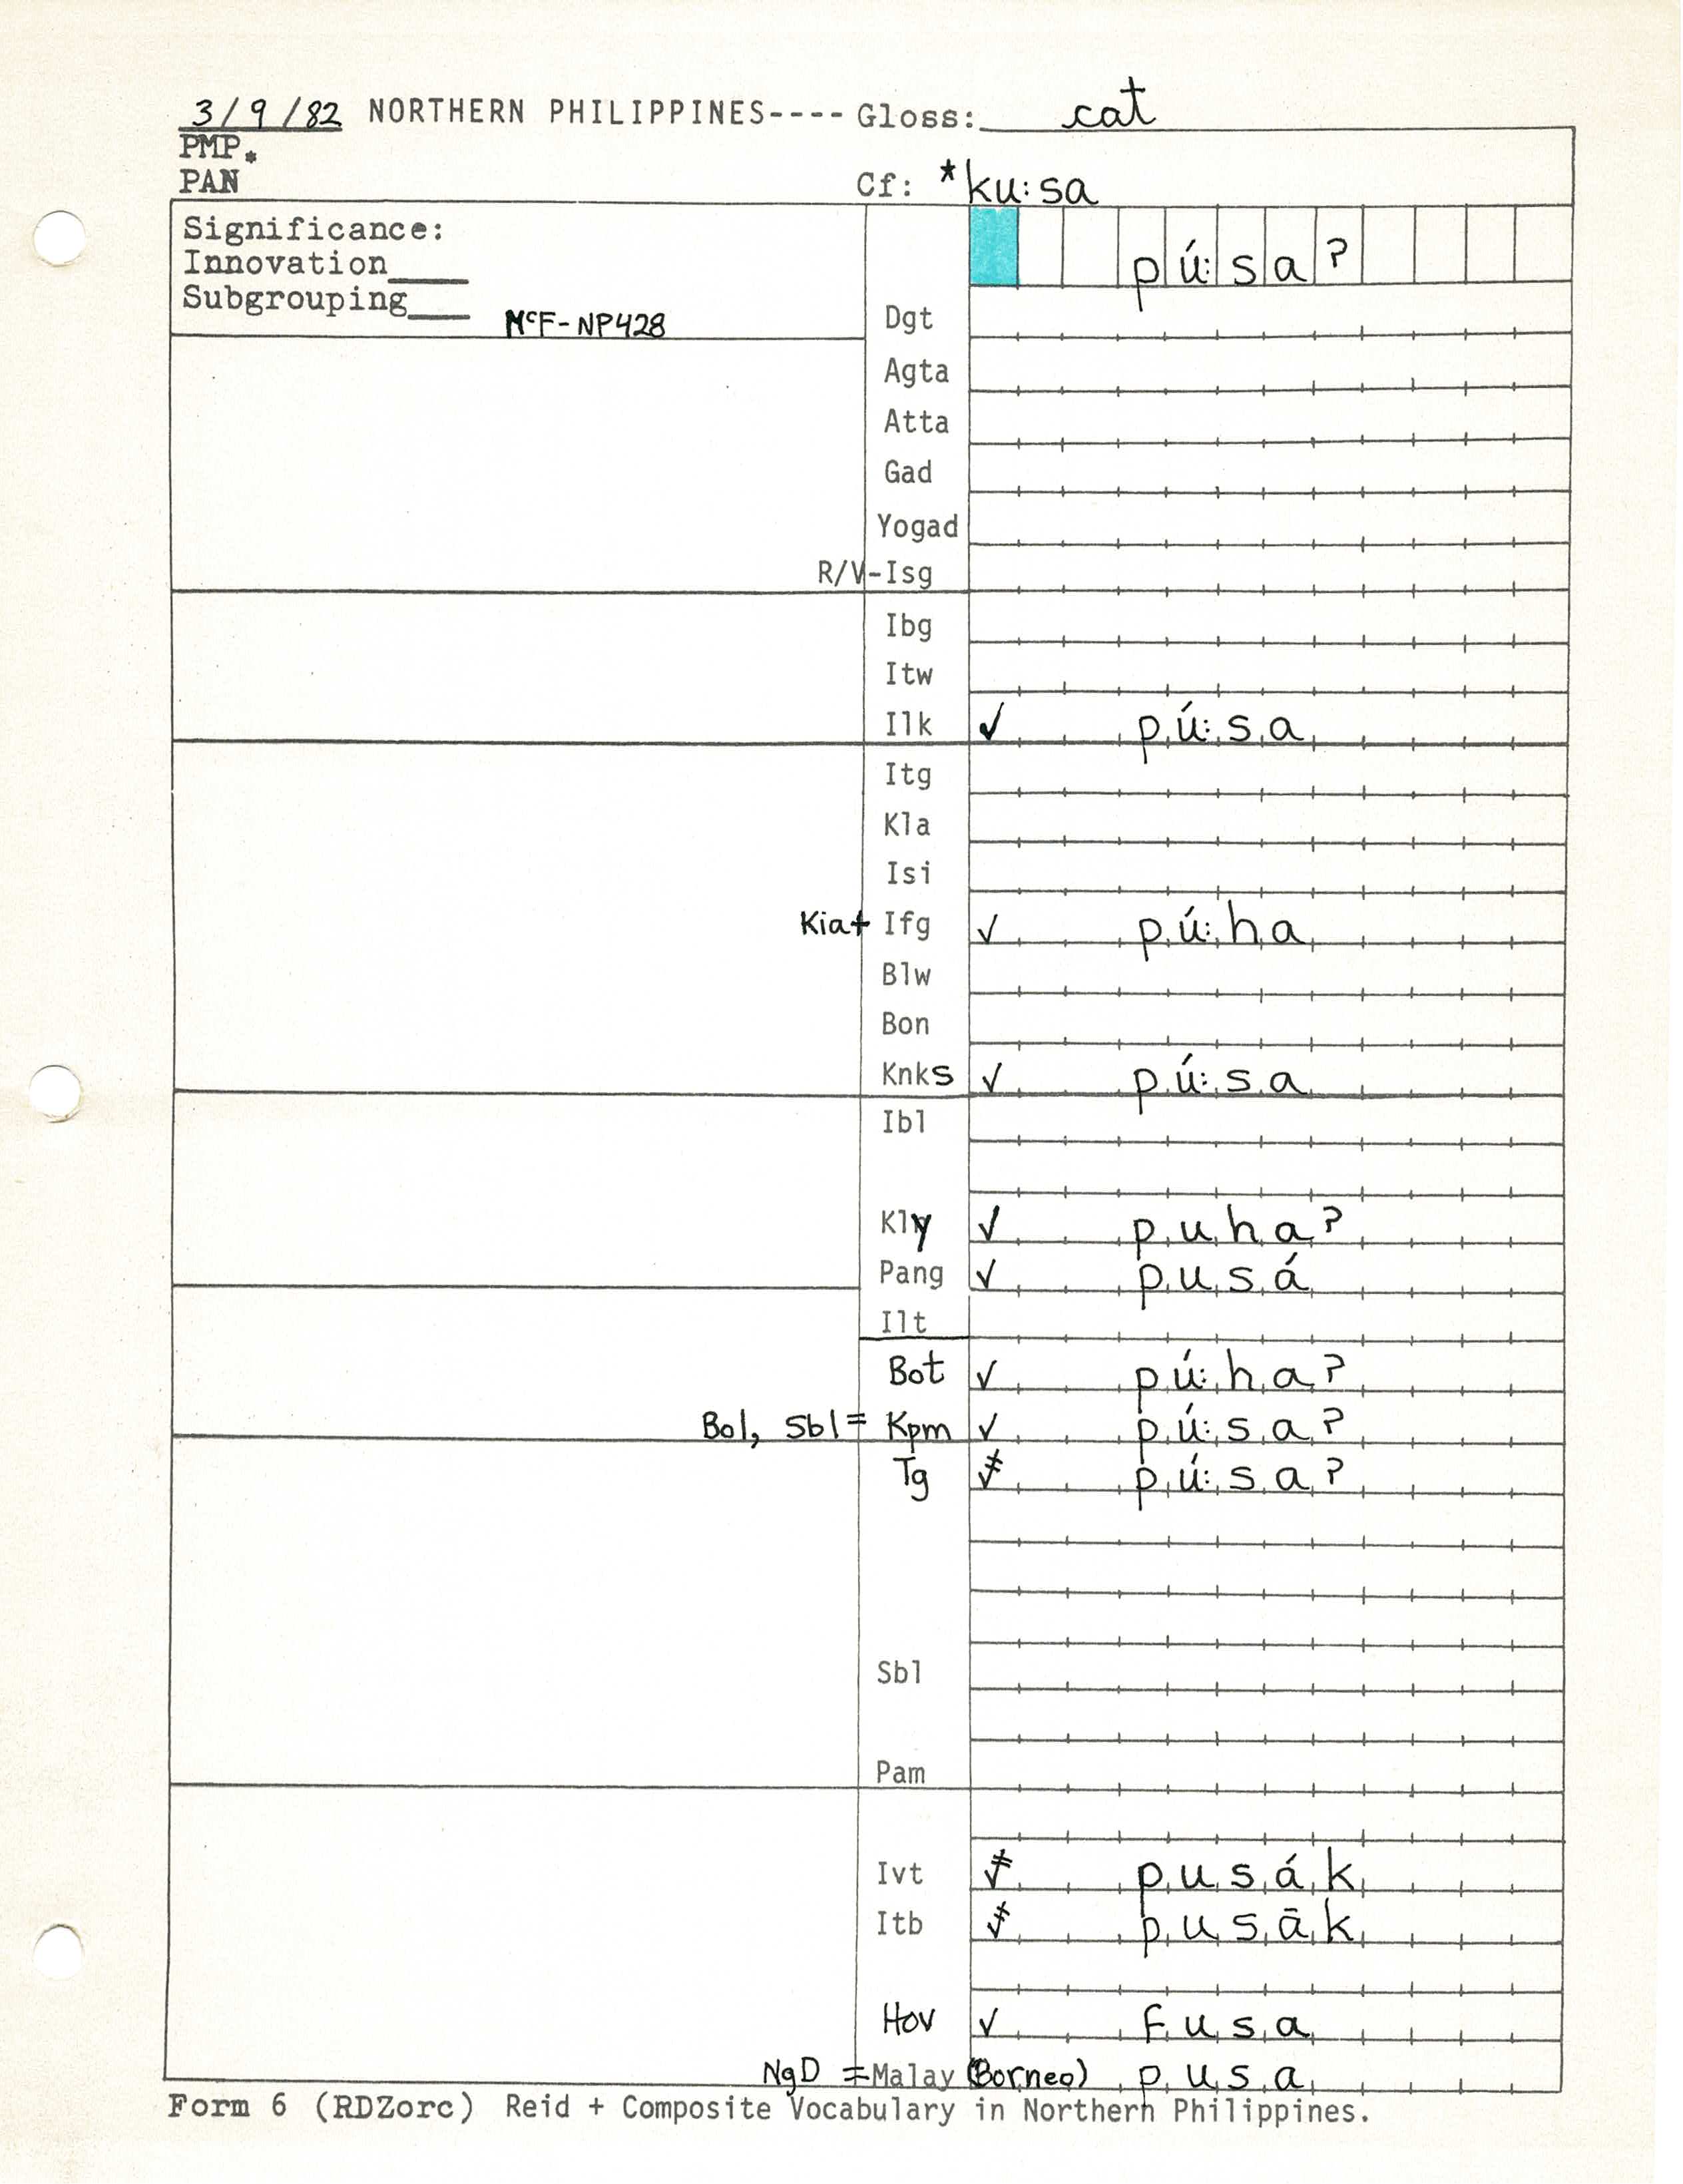 3/9/82 NORTHERN PHILIPPINES---- Gloss: cat
PMP*
PAN Cf: *ku:sa
Significance:
Innovation____
Subgrouping____
McF-NP428
pú:sa?
Dgt
Agta
Atta
Gad
Yogad
R/V-Isg
Ibg
Itw
Ilk ✓ pú:sa
Itg
Kla
Isi
Kia+ Ifg ✓ pú:ha
Blw
Bon
Knks ✓ pú:sa
Ibl
Kly ✓ puha?
Pang ✓ pusá
Ilt
Bot ✓ pú:ha?
Bol, Sbl = Kpm ✓ pú:sa?
Tg pú:sa?
Sbl
Pam
Ivt pusák
Itb pusāk
Hov ✓ fusa
NgD = Malay (Borneo) pusa
Form 6 (RDZorc) Reid + Composite Vocabulary in Northern Philippines.